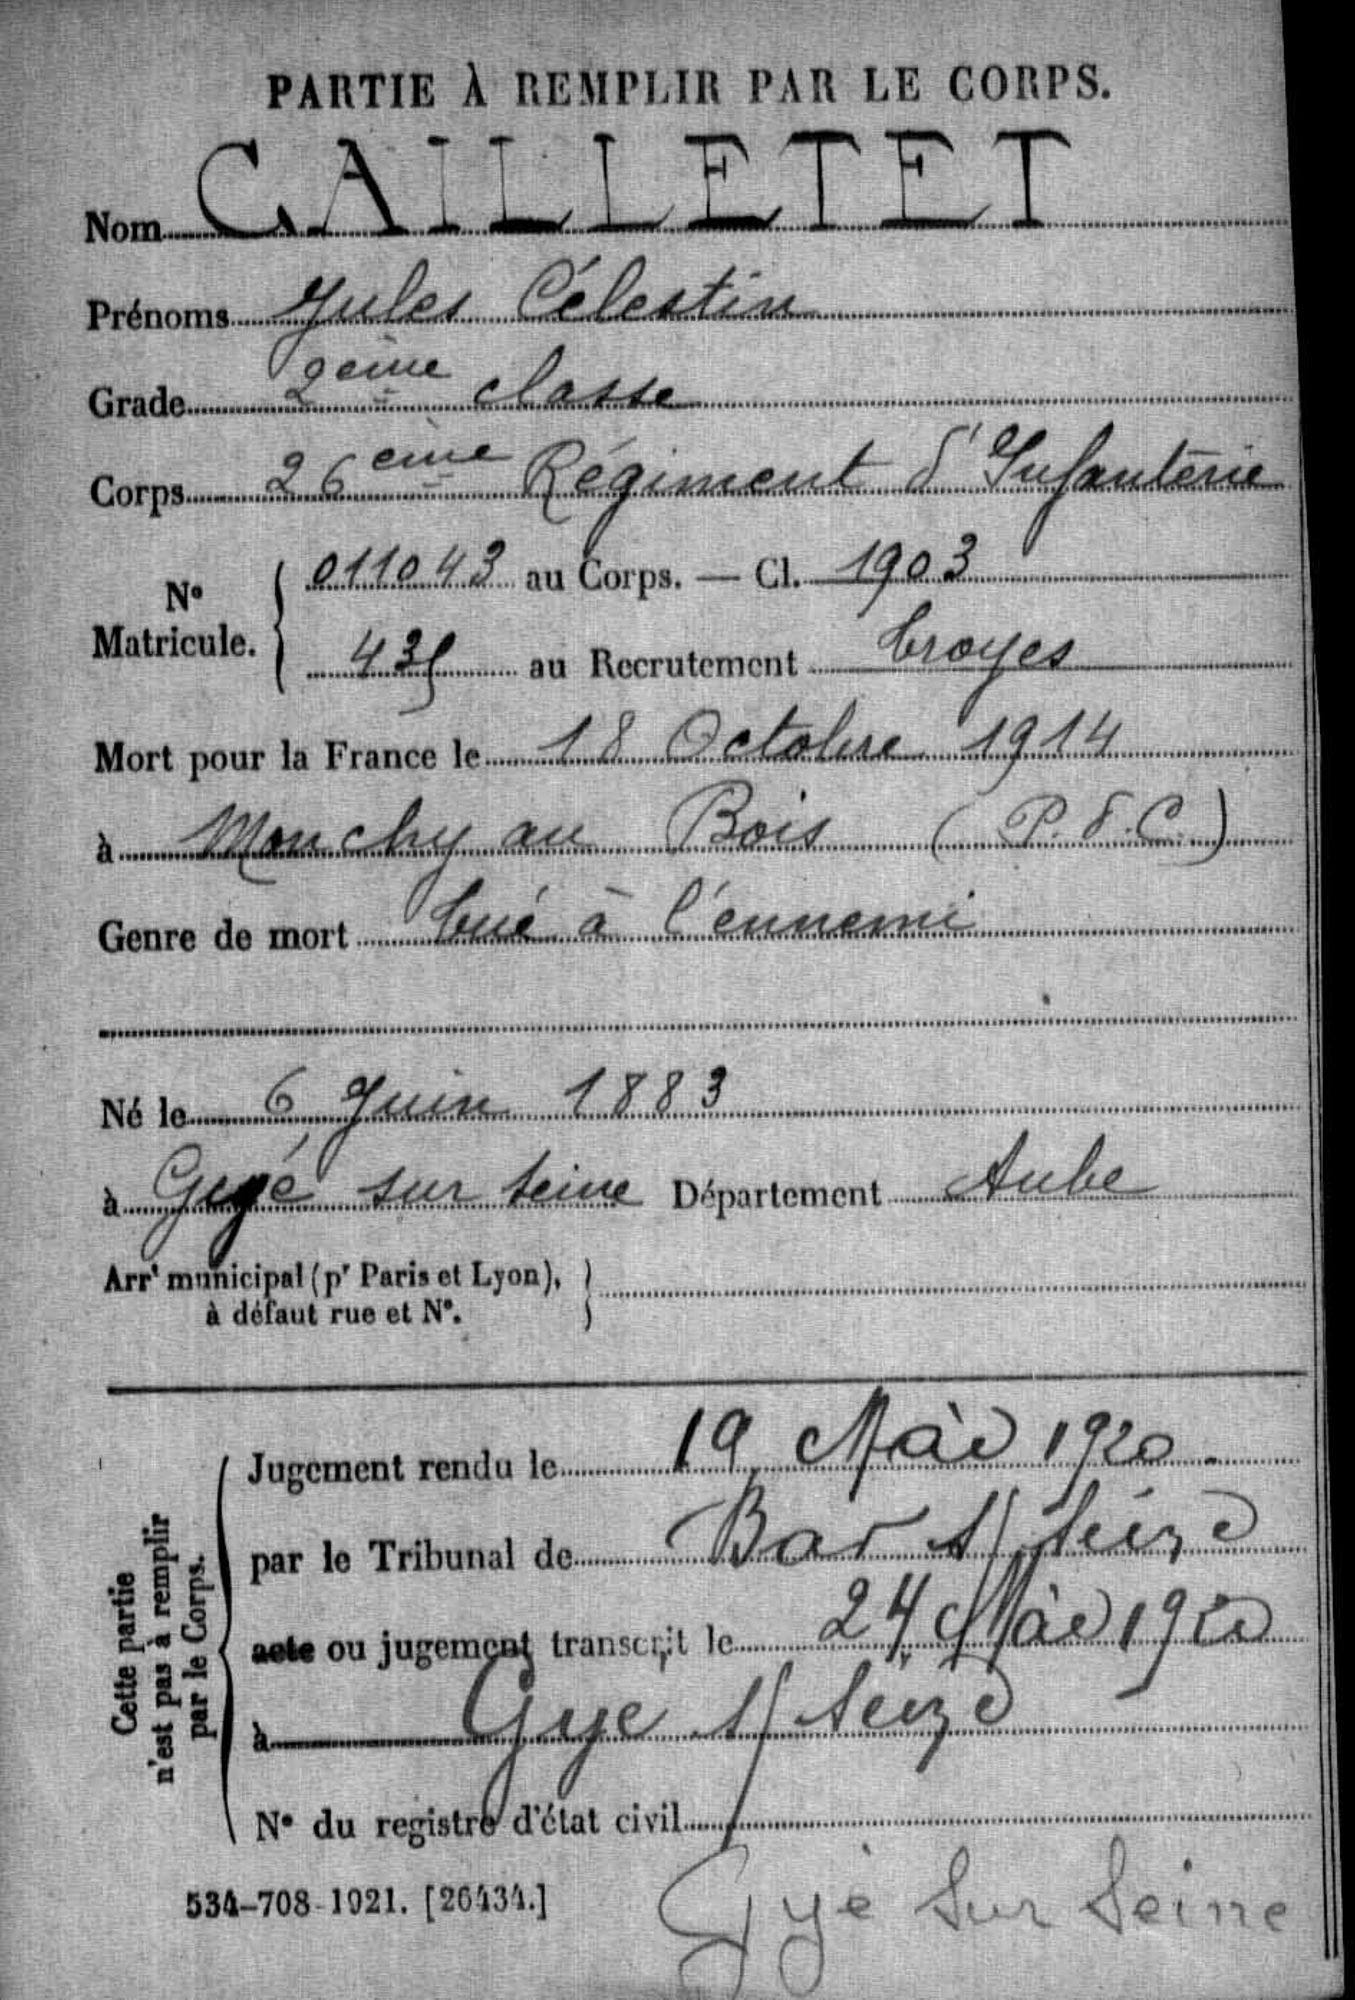 PARTIE À REMPLIR PAR LE CORPS.
Nom CAILLETET
Prénoms Jules Célestin
Grade 2ème classe
Corps 26ème Régiment d'Infanterie
No Matricule. { 011043 au Corps. — Cl. 1903
435 au Recrutement Troyes
Mort pour la France le 18 Octobre 1914
à Monchy au Bois (P.d.C.)
Genre de mort tué à l'ennemi
Né le 6 Juin 1883
à Gyé sur Seine Département Aube
Arrt municipal (pr Paris et Lyon), }
à défaut rue et No.
Cette partie
n'est pas à remplir
par le Corps.
Jugement rendu le 19 Mai 1920.
par le Tribunal de Bar s/ Seine
acte ou jugement transcrit le 24 Mai 1920
à Gyé s/ Seine
No du registre d'état civil
534-708-1921. [26434.]
Gyé sur Seine